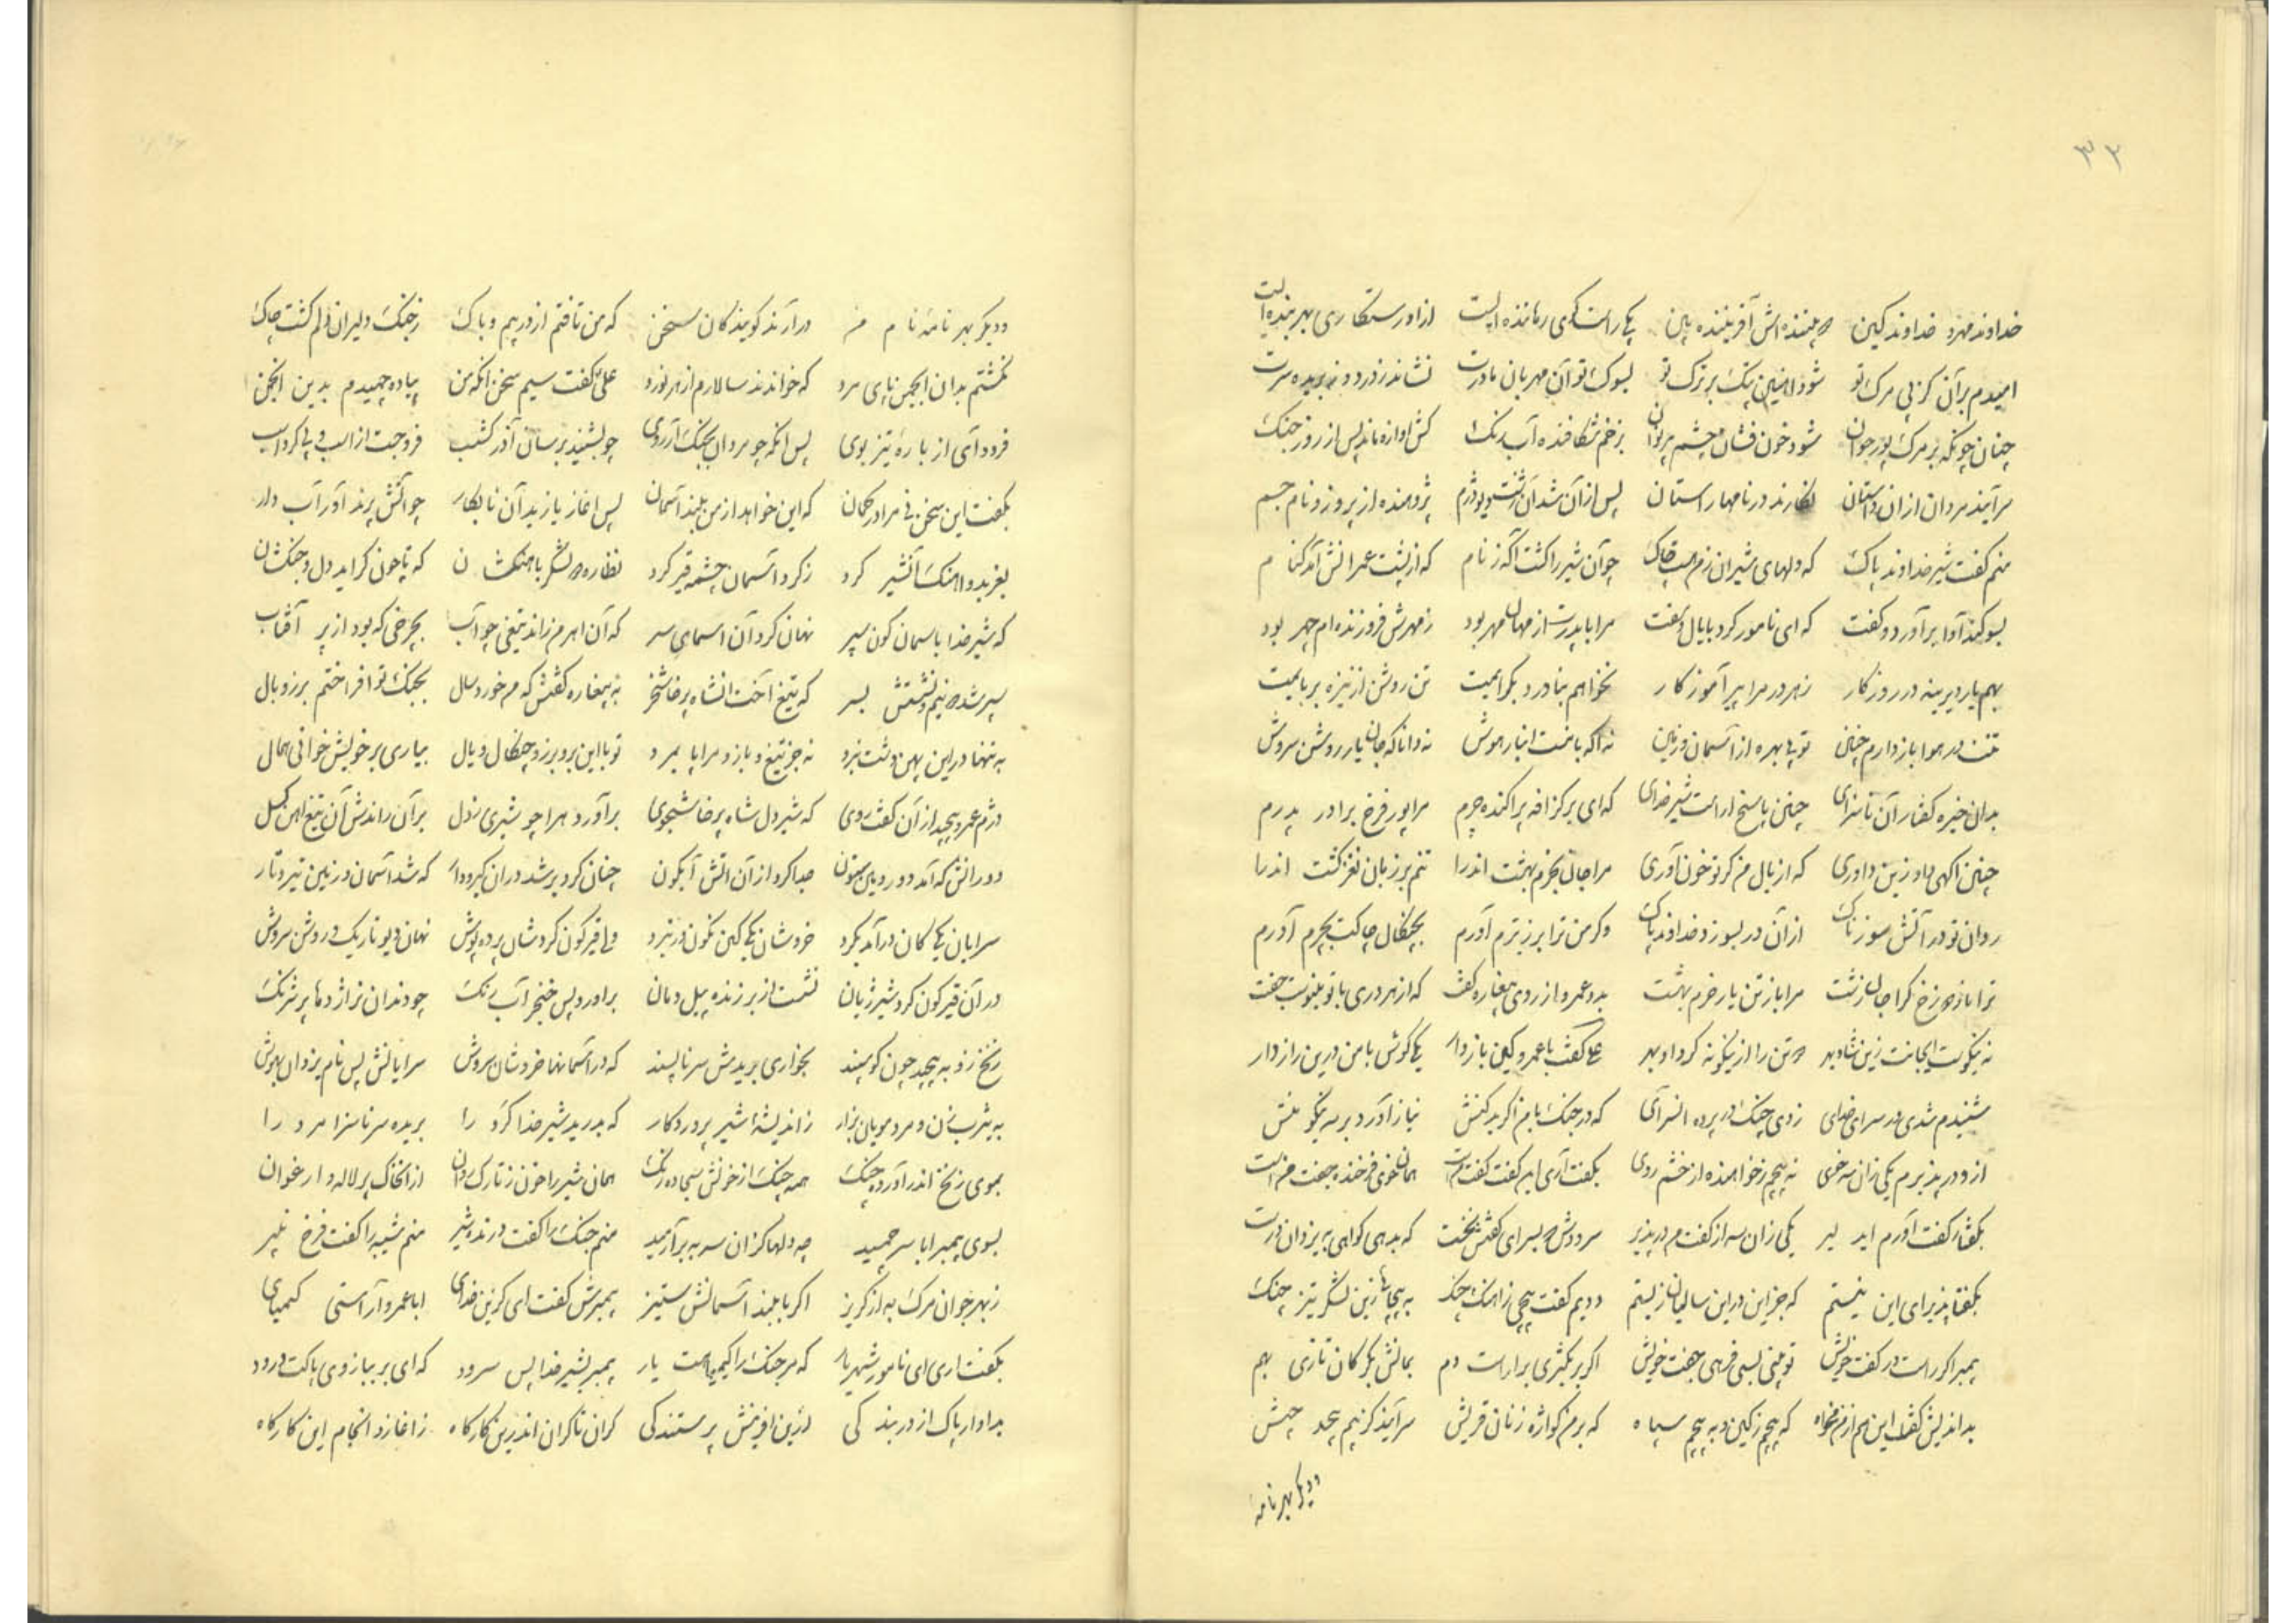 ۳۳
خداوند مهر و خداوند کین دو بیننده‌اش آفریننده بین یکی راست گوی رماننده است از او رستگاری بهر بنده است
امیدم بر آن کز پی مرک تو شود این پتک بر ترک تو بسوک تو آن مهربان مادرت نشاند ز درد و نه بریده سرت
چنان چونکه بر مرک پور جوان شود خون فشان چشم پر بزخم شکافنده آب رنک کش اوازه ماند پس از روز جنک
سرآیند مردان از ان داستان نکارند در نامها راستان پس از آن شد آن زشت دیو دژم پژوهنده از پروز و نام جم
منم کفت شیر خداوند پاک که دلهای شیران زمن چاک چو آن شیر را کشت آکه ز نام که از پشت عمرانش آمد کنام
بسوکند آوا برآورد و کفت که ای نامور کرد با یال و کفت مرا با پدرت از مهان مهر بود ز مهرش فروزنده‌ام چهر بود
بهم یار دیرینه در روزکار زهر در مرا پیر آموزکار نخواهم بناورد دیکر ایمیت تن روشن از نیزه بربایمیت
تنت در هوا باز دارم چنین تو بی بهره از آسمان و زمین نه آکه با تنت انباز هوش نه دانا که جان یار روشن سروش
بدان خیره کفتار آن ناسزای چنین پاسخ اراست شیر خدای که ای بر کزافه پراکنده چرم مرا پور فرخ برادر پدرم
چنین آکهی داد زین داوری که از یال من کر تو خون آوری مرا جان بخرم بهشت اندرا تنم بر زبان نغز کشت اندرا
روان تو در آتش سوزناک از آن در بسوزد خداوند پاک وکر من ترا بر ز ترم آورم بچنکال چاکت بچرم آورم
ترا باز دوزخ کرا جان زشت مرا باز تن یار خرم بهشت بدو عمرو از روی پیغاره کفت که از هر دری با تو نیکوست جفت
نه نیکوست ایجانت زین شاد بهر دو تن را از نیکونه کرد او بهر علی کفت با عمرو کین باز دار یکی کوش با من درین راز دار
شنیدم شدی در سرای خدای زدی چنک در پرده انسرای که در جنک با من اکر بد کنش نیاز آورد بر سه نیکو منش
از و در پذیرم یکی زان سه خوی نه پیچم ز خواهنده از خشم روی بکفت آری این کفت کفت من است همان خوی فرخنده جفت من است
بکفتار کفت آورم اید لیر یکی زان سه از کفت من در پذیر سروش دو سرای کفتش نخست که بدهی کواهی به یزدان درست
بکفتا پذیرای این نیستم که جز این در این سالیان زیستم دویم کفت پیچی ز آهنک جنک به پیچان ازین لشکر تیز چنک
پیمبر اکر راست در کفت خویش تو بینی بسی فرهی جفت خویش اکر بر بکثری براراست دم بمالش بکرکان تازی بهم
بداندیش کفت این هم از من مخواه که پیچم ز کین و به پیچم سپاه که بر من کواژه زنان قریش سرآیند کز بیم پیچد جیش
و دیکر بهر نامه
و دیکر بهر نامه نام من درآرند کویندکان سخن که من تافتم از در بیم و باک ز جنک دلیران دلم کشت چاک
نکشتم بدان انجمن پای مرد که خواندند سالارم از بهر نورد علی کفت سیم سخن انکه من پیاده چمیدم بدین انجمن
فرود آی از باره تیز پوی پس انکه چو مردان بجنک آر روی چو بشنید برسان آذرکشب فروجست از اسب و پی کرد اسب
بکفت این سخن نی مرا در کمان که این خواهد از من بلند آسمان پس اغاز یازید آن نابکار چو آتش پرند آور آب دار
بغرید و آهنک آن شیر کرد ز کرد آسمان چشمه قیر کرد نظاره دو لشکر باهنکشان که تا چون کراید دل و جنکشان
که شیر خدا باسمان کون سپر نهان کرد آن اسمای سر که آن اهرمن راند تیغی چو آب بچرخی که بود از بر آفتاب
سپر شد دو نیم و نشستش بسر که تیغ آخت انشاه پرخاشخر به پیغاره کفتش که من خورد سال بجنک تو افراختم برز و یال
به تنها در این پهن دشت نبرد نه جز تیغ و بازو مرا پایمرد تو با این بر و برز و چنکال و یال بیاری بر خویش خوانی همال
دژم عمرو پیچید از آن کفت روی که شیر دل شاه پرخاشجوی برآورد هرا چو شیری ز دل بر آن راندش آن تیغ اهن کسل
دو رانش که آمد دو رویین ستون جدا کرد از آن آتش آبکون چنان کرد بر شد در آن کیر و دار که شد آسمان و زمین تیره و تار
سرایان یکی کان درآمد بکرد خروشان یکی کین نکون در نبرد ولی قیرکون کردشان پرده پوش نهان دیو تاریک در روشن سروش
در آن قیرکون کرد شیر ژیان نشست از بر زنده پیل دمان برآورد پس خنجر آب رنک چو دندان تر اژدها پر شرنک
زنخ زو به پیچید چون کوسپند بخواری بریدش سر ناپسند که در آسمانها خروشان سروش سرایا لش پس نام یزدان بهوش
به یثرب زن و مرد مویان بزار ز اندیشه شیر پروردکار که بدرید شیر خدا کرد را بریده سر ناسزا مرد را
بموی زنخ اندر آورده چنک همه چنک از خونش بیجاده رنک همان شیر را خون ز تارک روان از آن خاک پر لاله و ارغوان
بسوی پیمبر ابا سر چمید چه دلها کزان سر به بر آرمید منم جنک را کفت درنده شیر منم شیبه را کفت فرخ نبیر
ز بهر جوان مرک به از کریز اکر با بلند آسمانش ستیز پیمبرش کفت ای کزین خدای ابا عمرو آراستی کیمیای
بکفت اری ای نامور شهریار که مر جنک را کیمیاست یار پیمبر بشیر خدا پس سرود که ای بر ببازوی پاکت درود
بدادار پاک از در بندکی ازین افرینش پرستندکی کران تا کران اندرین کارکاه ز اغاز و انجام این کارکاه